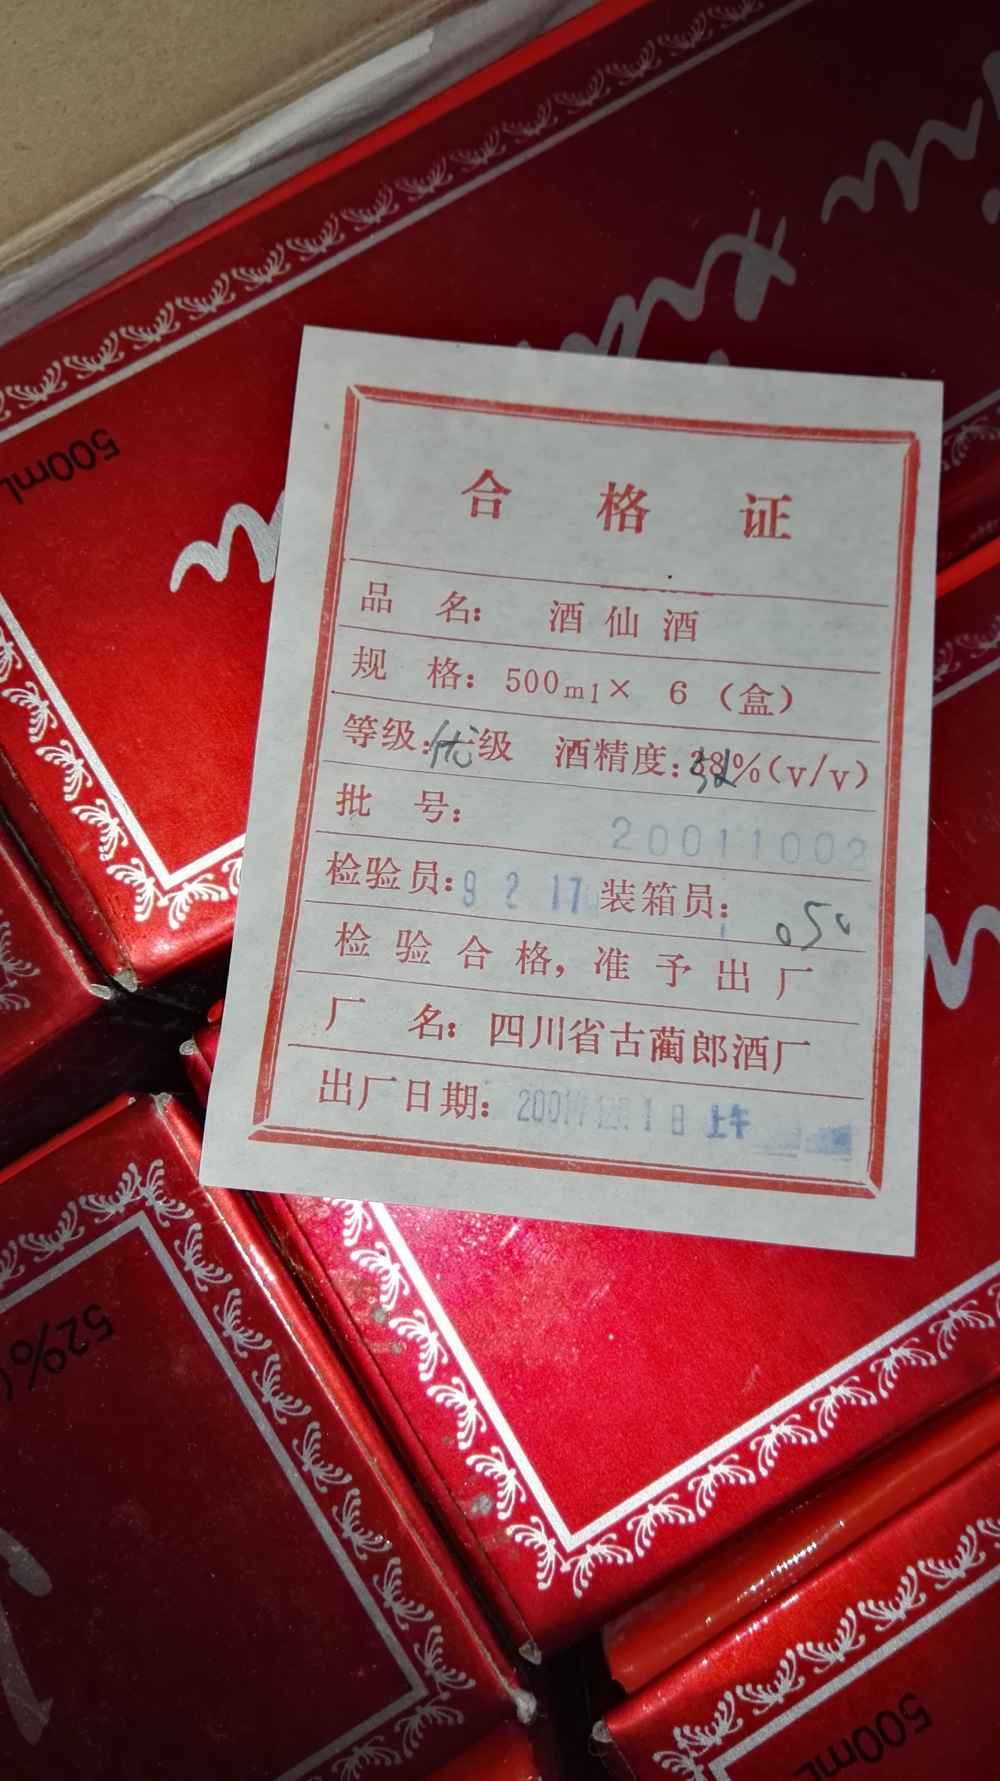 500mL
合格证
品 名： 酒仙酒
规 格：500ml× 6（盒）
等级：优级 酒精度：52%(v/v)
批 号： 20011002
检验员：9 2 17 装箱员：050
检验合格，准予出厂
厂 名：四川省古蔺郎酒厂
出厂日期：2001年 1日 上午
52%(
500mL